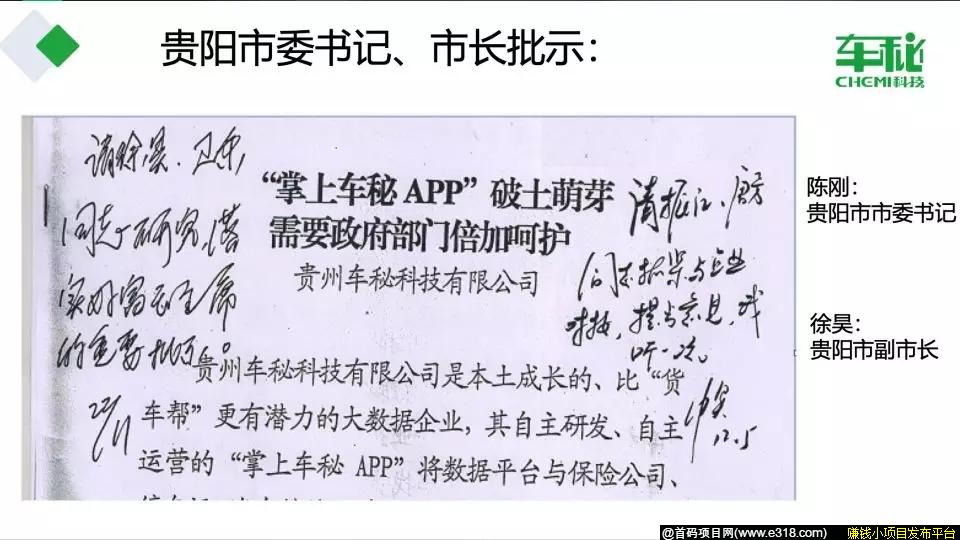 贵阳市委书记、市长批示：
车秘
CHEMI科技
请徐昊、卫东
同志研究，落
实好富玉主席
的重要批示。
“掌上车秘 APP”破土萌芽
需要政府部门倍加呵护
贵州车秘科技有限公司
同志抓紧与企业
对接，提出意见，我
听一次。
12.5
贵州车秘科技有限公司是本土成长的、比“货
车帮”更有潜力的大数据企业，其自主研发、自主
运营的“掌上车秘 APP”将数据平台与保险公司、
陈刚：
贵阳市市委书记
徐昊：
贵阳市副市长
@首码项目网(www.e318.com)
赚钱小项目发布平台